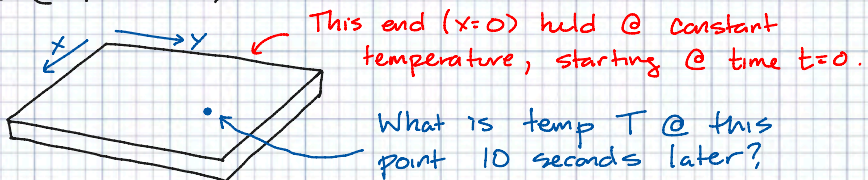 This end (x=0) held @ constant
temperature, starting @ time t=0.
X
Y
What is temp T @ this
point 10 seconds later?